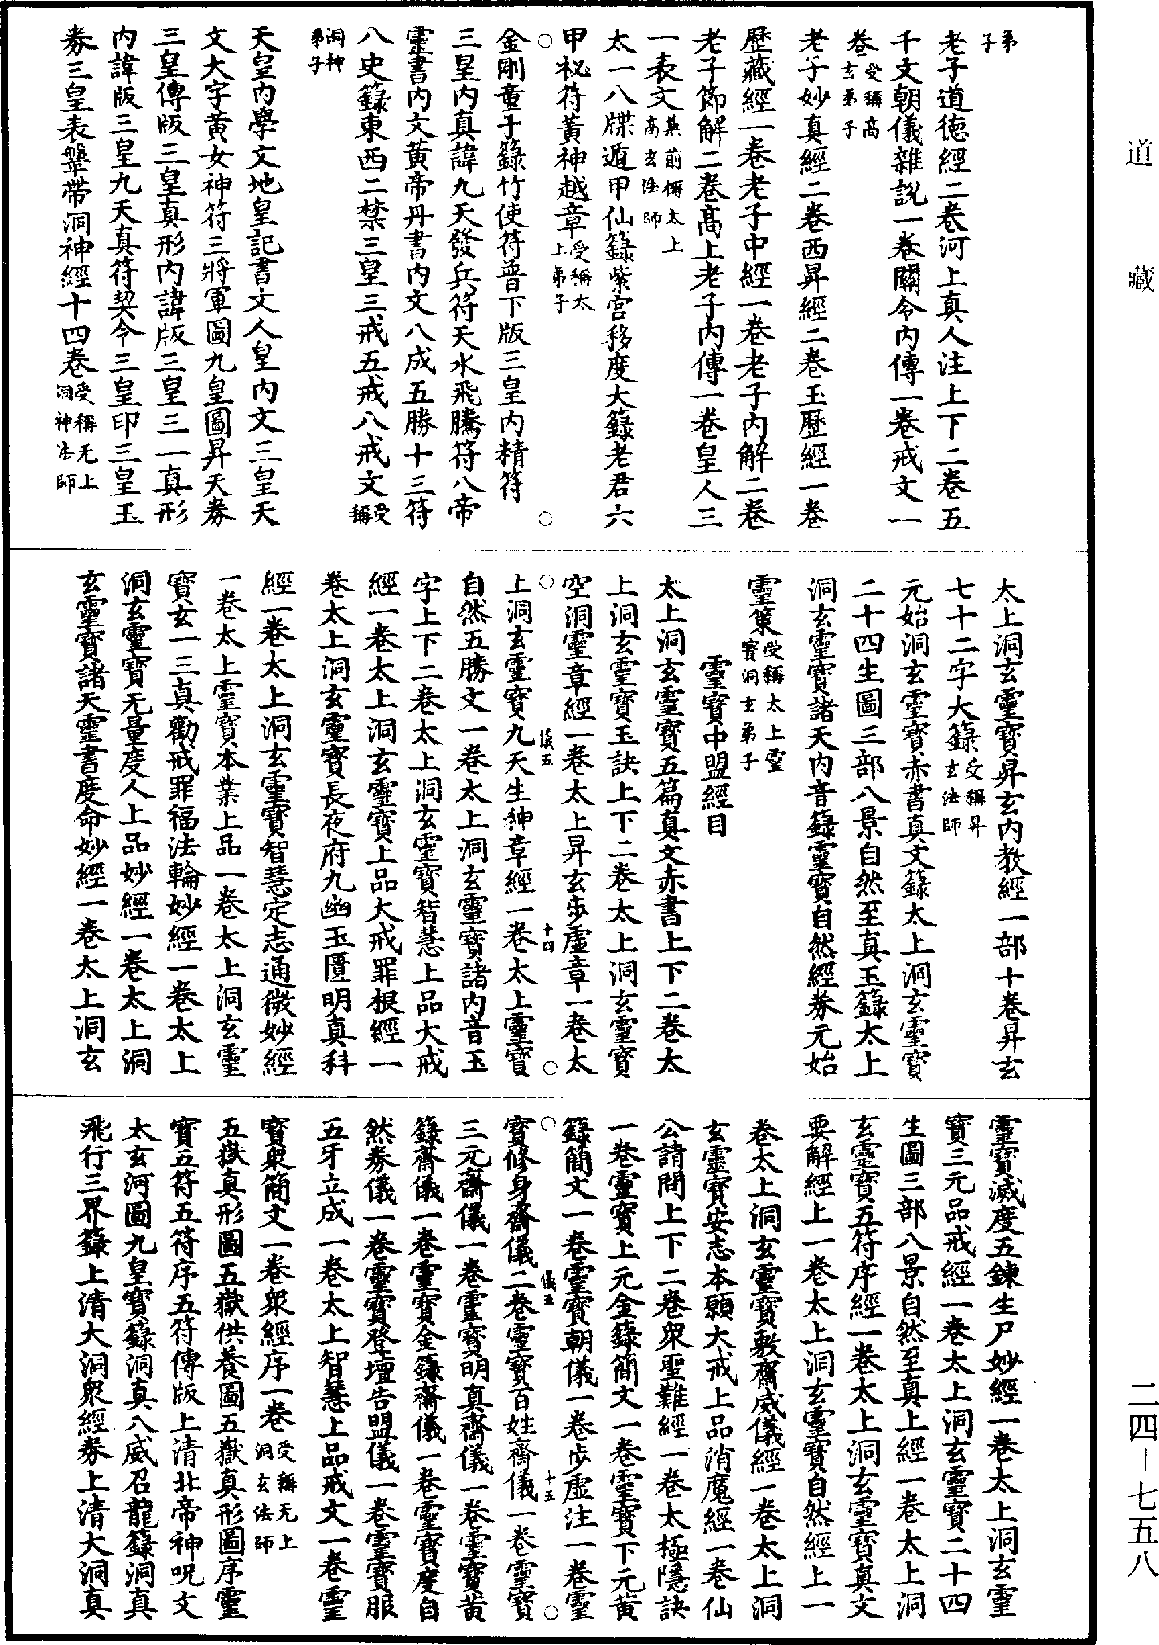 道藏
弟子
老子道德經二卷河上真人注上下二卷五
千文朝儀雜說一卷關令內傳一卷戒文一
卷受稱高玄弟子
老子妙真經二卷西昇經二卷玉歷經一卷
歷藏經一卷老子中經一卷老子內解二卷
老子節解二卷高上老子內傳一卷皇人三
一表文其前稱太上高玄法師
太一八牒遁甲仙籙紫宮移度大籙老君六
甲祕符黃神越章受稱太上弟子
金剛童子籙竹使符普下版三皇內精符
三皇內真諱九天發兵符天水飛騰符八帝
靈書內文黃帝丹書內文八成五勝十三符
八史籙東西二禁三皇三戒五戒八戒文受稱
洞神弟子
天皇內學文地皇記書文人皇內文三皇天
文大字黃女神符三將軍圖九皇圖昇天券
三皇傳版三皇真形內諱版三皇三一真形
內諱版三皇九天真符契令三皇印三皇玉
券三皇表鞶帶洞神經十四卷受稱无上洞神法師
太上洞玄靈寶昇玄內教經一部十卷昇玄
七十二字大籙受稱昇玄法師
元始洞玄靈寶赤書真文籙太上洞玄靈寶
二十四生圖三部八景自然至真玉籙太上
洞玄靈寶諸天內音籙靈寶自然經券元始
靈策受稱太上靈寶洞玄弟子
靈寶中盟經目
太上洞玄靈寶五篇真文赤書上下二卷太
上洞玄靈寶玉訣上下二卷太上洞玄靈寶
空洞靈章經一卷太上昇玄步虛章一卷太
儀五 十四
上洞玄靈寶九天生神章經一卷太上靈寶
自然五勝文一卷太上洞玄靈寶諸內音玉
字上下二卷太上洞玄靈寶智慧上品大戒
經一卷太上洞玄靈寶上品大戒罪根經一
卷太上洞玄靈寶長夜府九幽玉匱明真科
經一卷太上洞玄靈寶智慧定志通微妙經
一卷太上靈寶本業上品一卷太上洞玄靈
寶玄一三真勸戒罪福法輪妙經一卷太上
洞玄靈寶无量度人上品妙經一卷太上洞
玄靈寶諸天靈書度命妙經一卷太上洞玄
靈寶滅度五鍊生尸妙經一卷太上洞玄靈
寶三元品戒經一卷太上洞玄靈寶二十四
生圖三部八景自然至真上經一卷太上洞
玄靈寶五符序經一卷太上洞玄靈寶真文
要解經上一卷太上洞玄靈寶自然經上一
卷太上洞玄靈寶敷齋威儀經一卷太上洞
玄靈寶安志本願大戒上品消魔經一卷仙
公請問上下二卷眾聖難經一卷太極隱訣
一卷靈寶上元金籙簡文一卷靈寶下元黃
籙簡文一卷靈寶朝儀一卷步虛注一卷靈
儀五 十五
寶修身齋儀二卷靈寶百姓齋儀一卷靈寶
三元齋儀一卷靈寶明真齋儀一卷靈寶黃
籙齋儀一卷靈寶金籙齋儀一卷靈寶度自
然券儀一卷靈寶登壇告盟儀一卷靈寶服
五牙立成一卷太上智慧上品戒文一卷靈
寶眾簡文一卷眾經序一卷受稱无上洞玄法師
五嶽真形圖五嶽供養圖五嶽真形圖序靈
寶五符五符序五符傳版上清北帝神呪文
太玄河圖九皇寶籙洞真八威召龍籙洞真
飛行三界籙上清大洞眾經券上清大洞真
二四—七五八